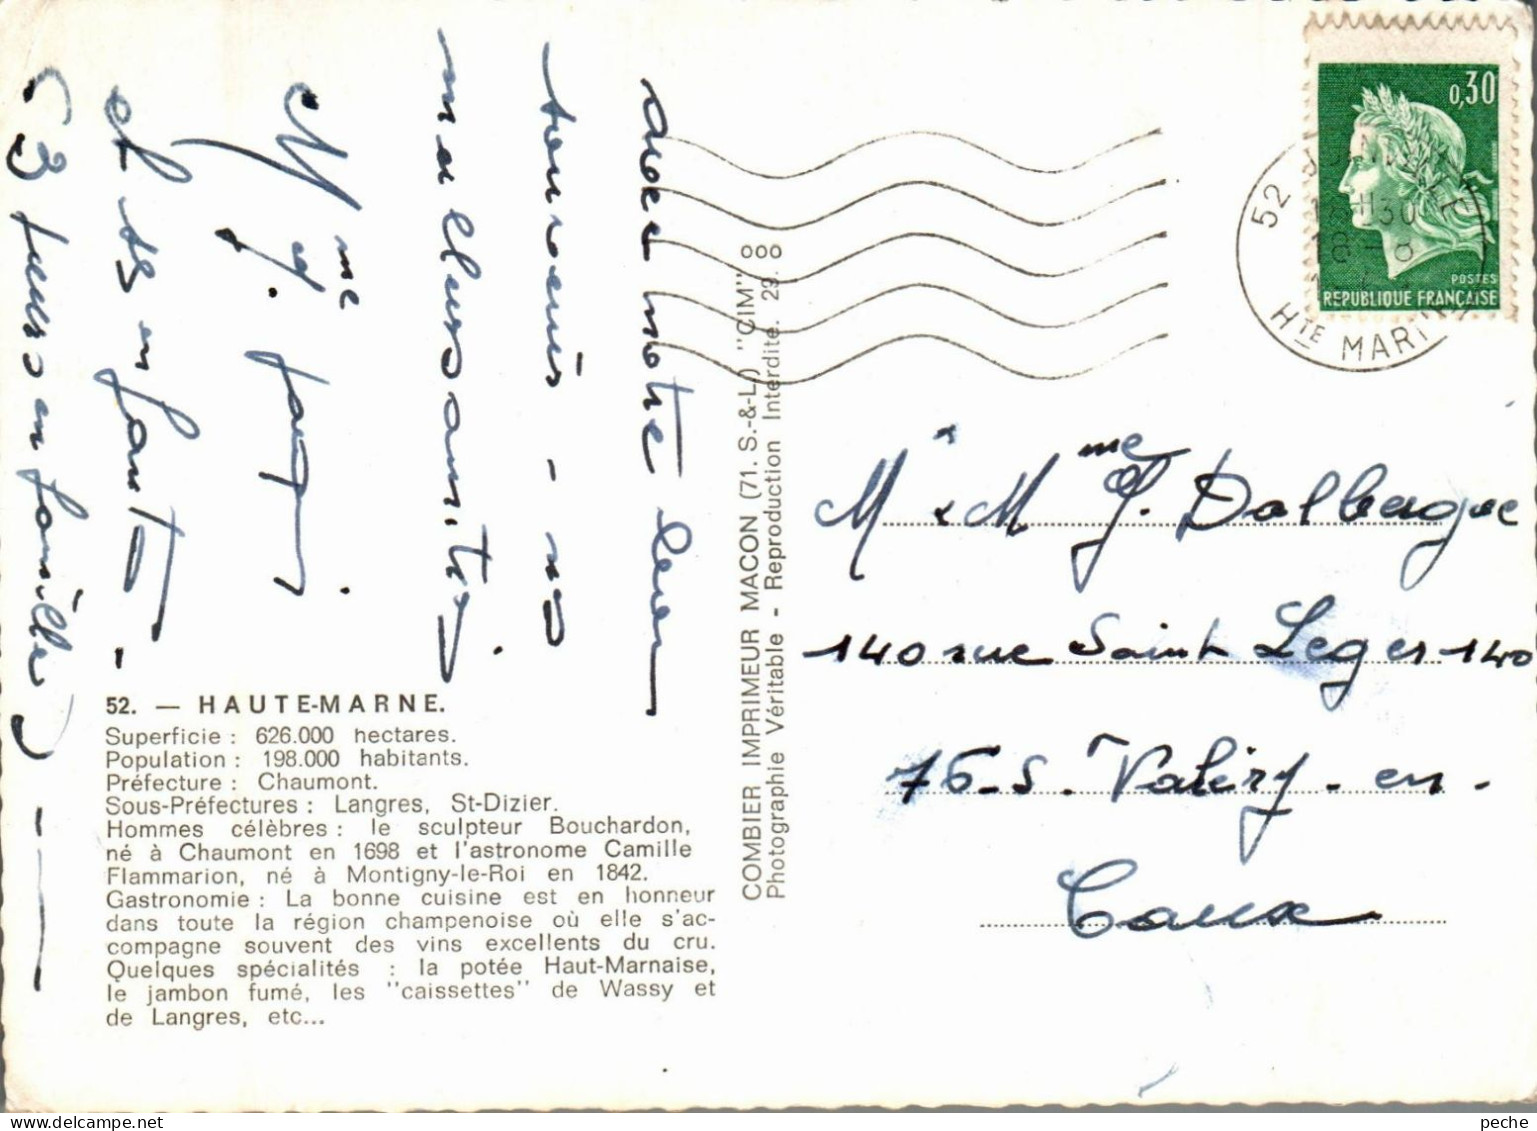 avec notre bon
souvenir - nos
meilleurs amitiés.
Mme J.
et les enfants -
(3 jours en famille)
52. — HAUTE-MARNE.
Superficie : 626.000 hectares.
Population : 198.000 habitants.
Préfecture : Chaumont.
Sous-Préfectures : Langres, St-Dizier.
Hommes célèbres : le sculpteur Bouchardon,
né à Chaumont en 1698 et l'astronome Camille
Flammarion, né à Montigny-le-Roi en 1842.
Gastronomie : La bonne cuisine est en honneur
dans toute la région champenoise où elle s'ac-
compagne souvent des vins excellents du cru.
Quelques spécialités : la potée Haut-Marnaise,
le jambon fumé, les "caissettes" de Wassy et
de Langres, etc...
COMBIER IMPRIMEUR MACON (71. S.-&-L.) "CIM" ooo
Photographie Véritable - Reproduction Interdite. 29. 8
0,30
POSTES
REPUBLIQUE FRANÇAISE
52
HTE MARNE
M & Mme J. Dalbergue
140 rue Saint Leger 140
76 - S. Valéry - en -
Caux
peche